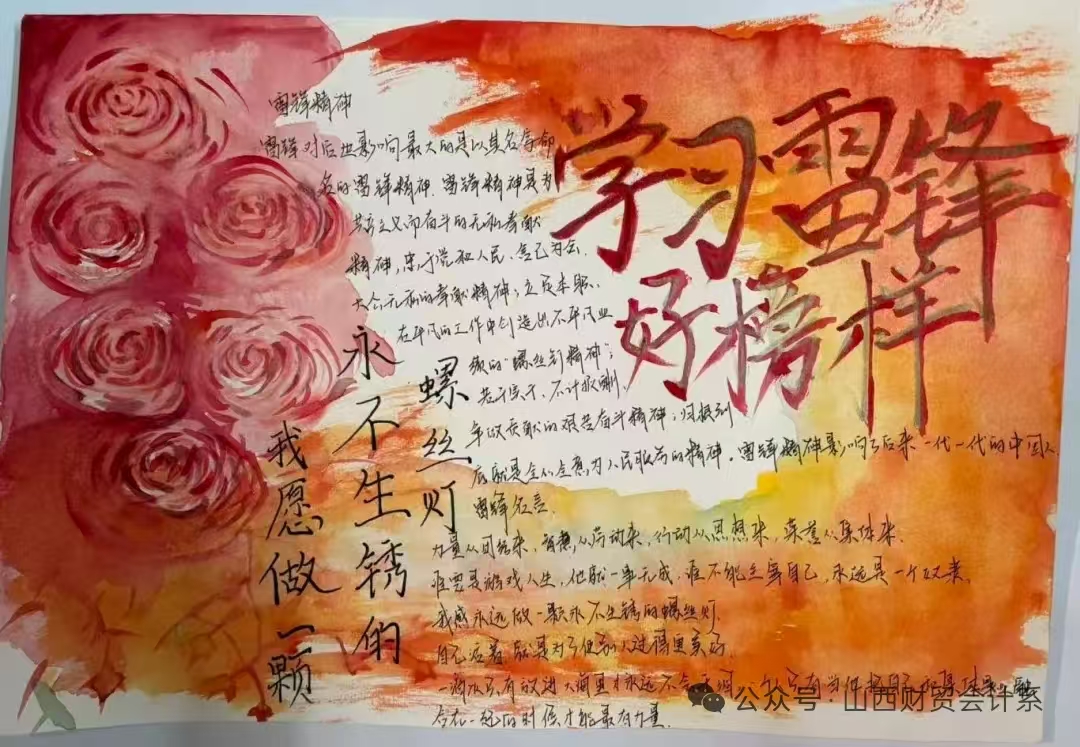 学习雷锋
好榜样
雷锋精神
雷锋对后世影响最大的是以其名字命
名的雷锋精神.雷锋精神是为
共产主义而奋斗的无私奉献
精神,忠于党和人民、舍己为公、
大公无私的奉献精神;立足本职、
在平凡的工作中创造出不平凡业
绩的“螺丝钉精神”;
苦干实干、不计报酬、
争做贡献的艰苦奋斗精神;归根到
底就是全心全意为人民服务的精神。雷锋精神影响了后来一代一代的中国人.
我愿做一颗
永不生锈的
螺丝灯
雷锋名言.
力量从团结来,智慧从劳动来,行动从思想来,荣誉从集体来.
谁要是游戏人生,他就一事无成,谁不能主宰自己,永远是一个奴隶.
我愿永远做一颗永不生锈的螺丝灯.
自己活着,就是为了使别人过得更美好.
一滴水只有放进大海里才永远不会干涸,一个人只有当他把自己和集体事业融
合在一起的时候才能最有力量.
公众号·山西财贸会计系